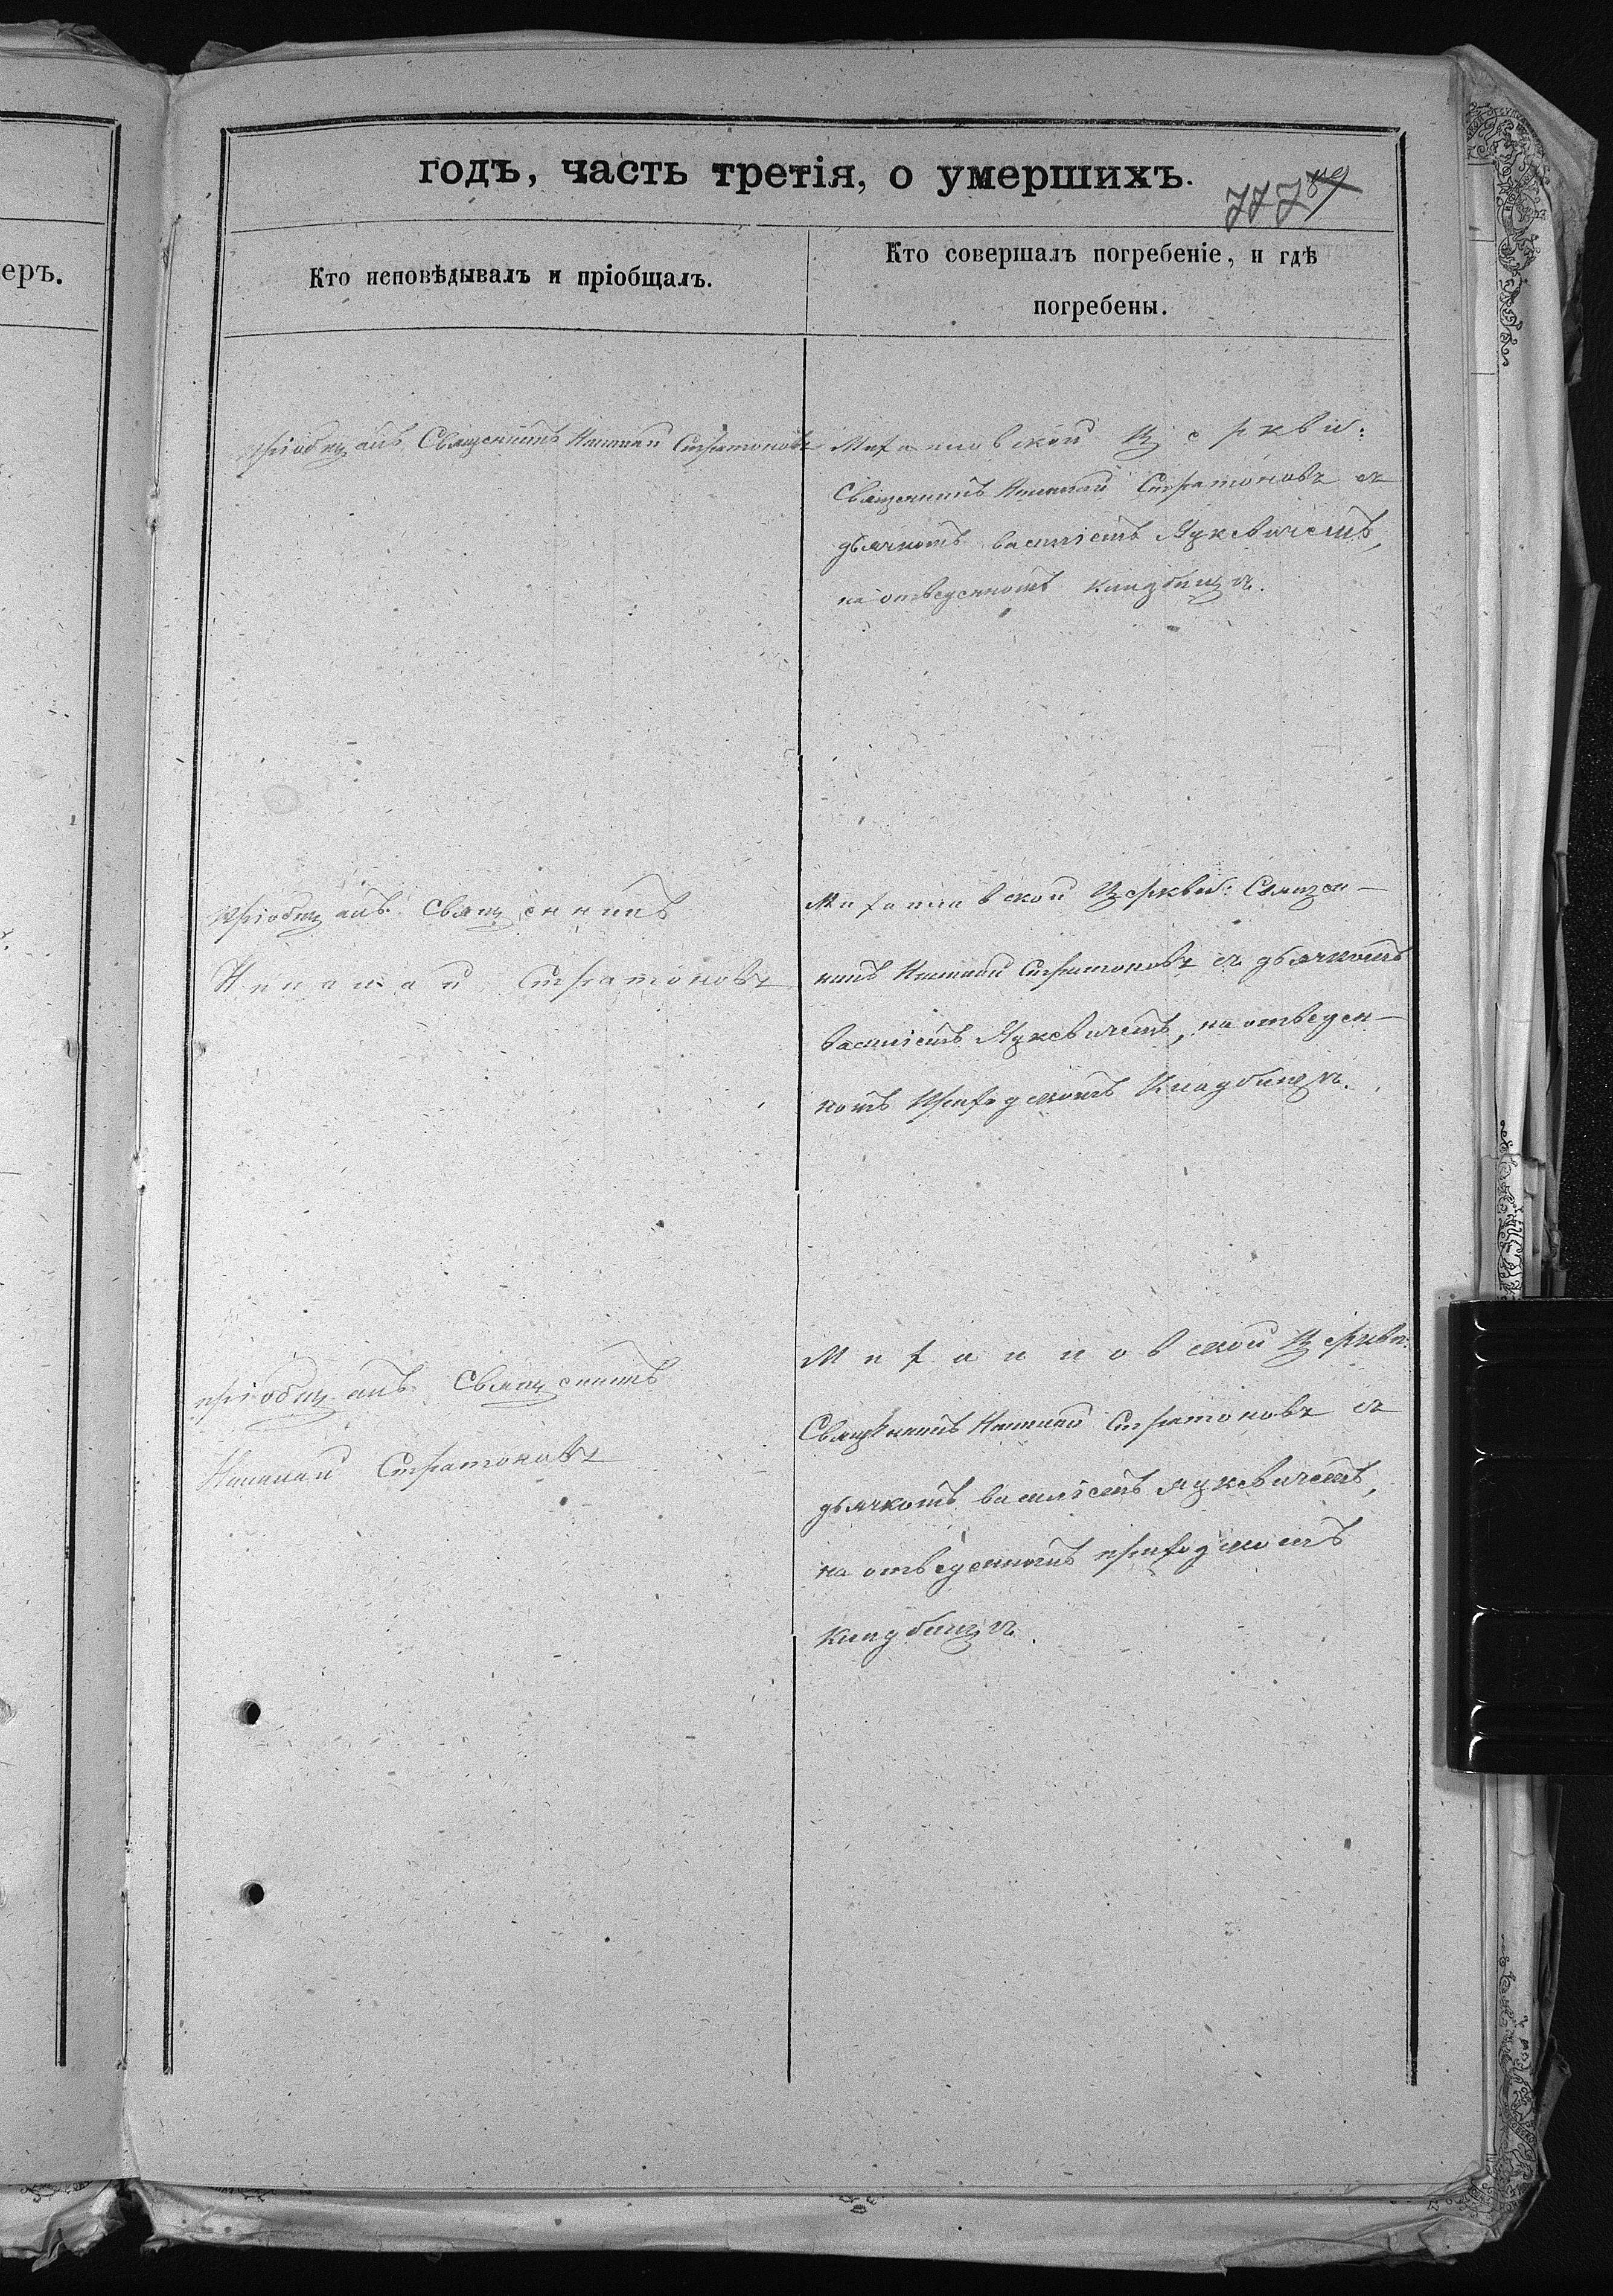 еръ.
годъ, часть третія, о умершихъ.
777
Кто исповѣдывалъ и пріобщалъ.
Кто совершалъ погребеніе, и гдѣ
погребены.
пріобщалъ Священникъ Николай Стратоновъ
Михаиловской Церкви:
Священникъ Николай Стратоновъ съ
дьячкомъ Василіемъ Яцкевичемъ,
на отведенномъ кладбищѣ.
пріобщалъ Священникъ
Николай Стратоновъ
Михаиловской Церкви: Священ-
никъ Николай Стратоновъ съ дьячкомъ
Василіемъ Яцкевичемъ, на отведен-
номъ Приходскомъ Кладбищѣ.
пріобщалъ Священникъ
Николай Стратоновъ
Михаиловской Церкви:
Священникъ Николай Стратоновъ съ
дьячкомъ Василіемъ Яцкевичемъ,
на отведенномъ приходскомъ
кладбищѣ.